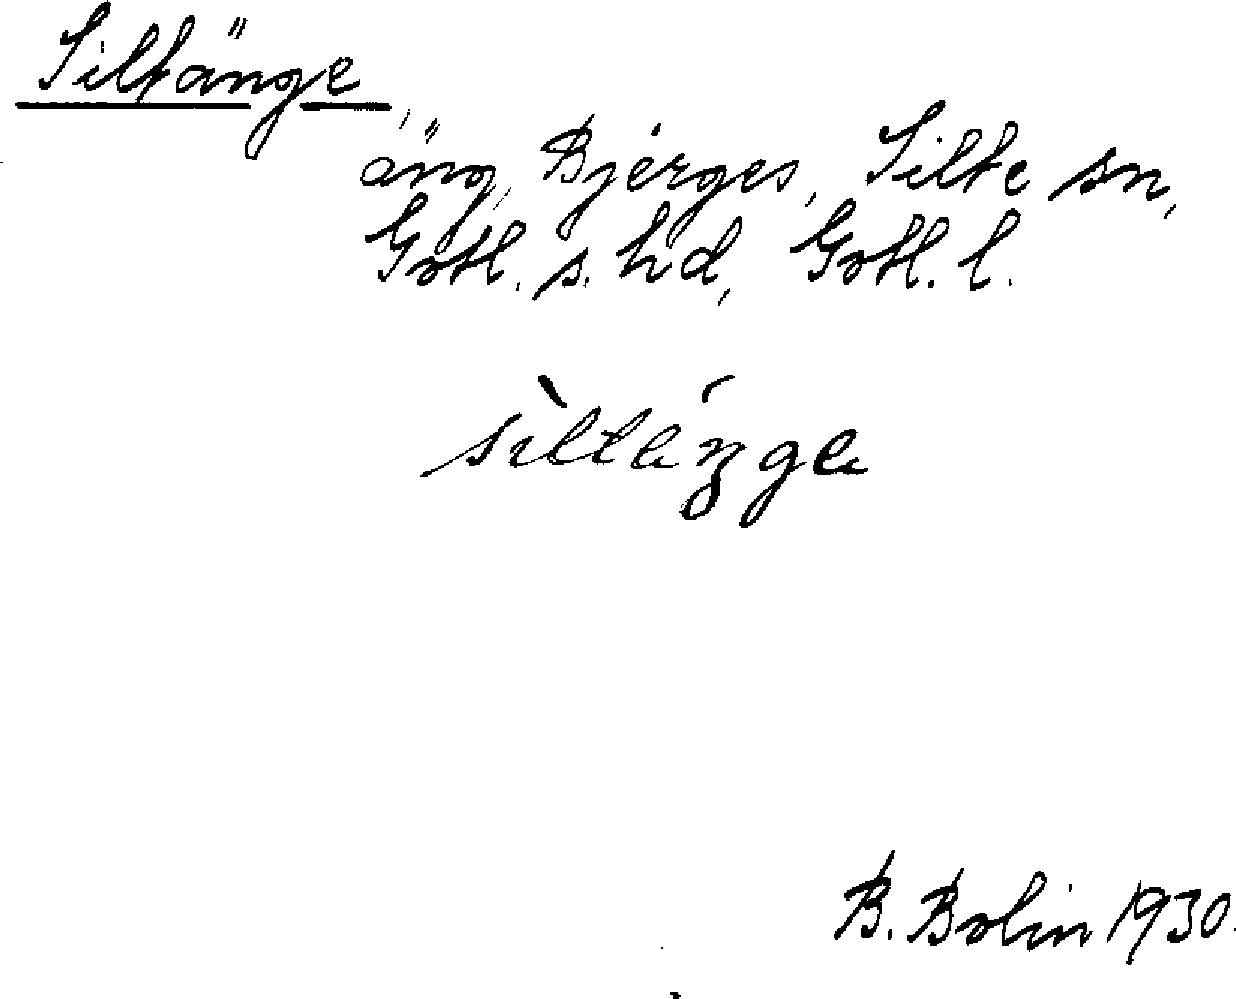 Siltänge,
äng, Bjerges, Silte sn,
Gotl. s. hd, Gotl. l.
sìltä́ŋgä
B. Bolin 1930.